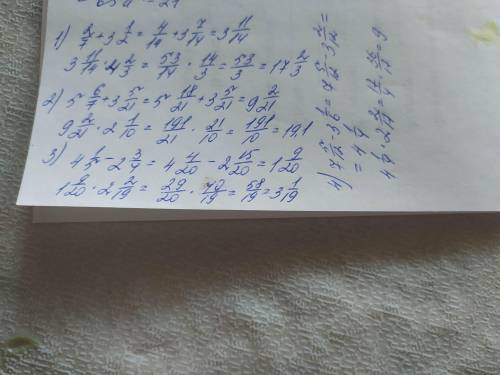 1) 2/7 + 3 1/2 = 4/14 + 3 7/14 = 3 11/14
3 11/14 · 4 2/3 = 53/14 · 14/3 = 53/3 = 17 2/3
2) 5 6/7 + 3 5/21 = 5 18/21 + 3 5/21 = 9 2/21
9 2/21 · 2 1/10 = 191/21 · 21/10 = 191/10 = 19,1
3) 4 1/5 - 2 3/4 = 4 4/20 - 2 15/20 = 1 9/20
1 9/20 · 2 2/19 = 29/20 · 40/19 = 58/19 = 3 1/19
4) 7 5/12 - 3 1/6 = 7 5/12 - 3 2/12 =
= 4 1/4
4 1/4 · 2 2/17 = 17/4 · 36/17 = 9